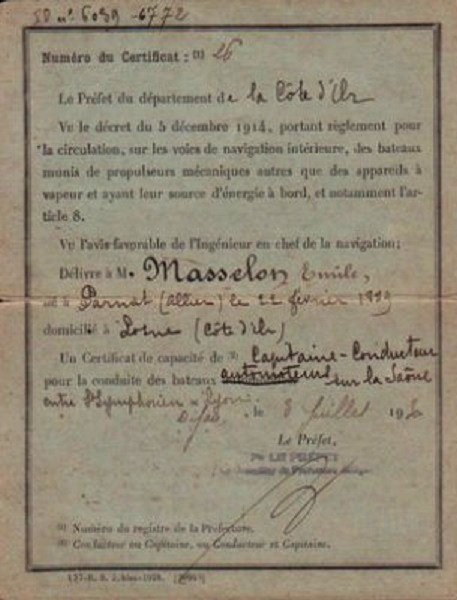 nº 5039 -6772
Numéro du Certificat : (1) 26
Le Préfet du département de la Côte d'Or
Vu le décret du 5 décembre 1914, portant règlement pour
la circulation, sur les voies de navigation intérieure, des bateaux
munis de propulseurs mécaniques autres que des appareils à
vapeur et ayant leur source d'énergie à bord, et notamment l'ar-
ticle 8.
Vu l'avis favorable de l'Ingénieur en chef de la navigation;
Délivre à M. Masselon Emile,
né à Parnat (Allier) le 22 février 1899
domicilié à Losne (Côte d'Or)
Un Certificat de capacité de (2) Capitaine-Conducteur
pour la conduite des bateaux automoteurs sur la Saône
entre St Symphorien Lyon
Dijon, le 8 Juillet 19
Le Préfet,
LE PRÉFET
(1) Numéro du registre de la Préfecture.
(2) Conducteur ou Capitaine, ou Conducteur et Capitaine.